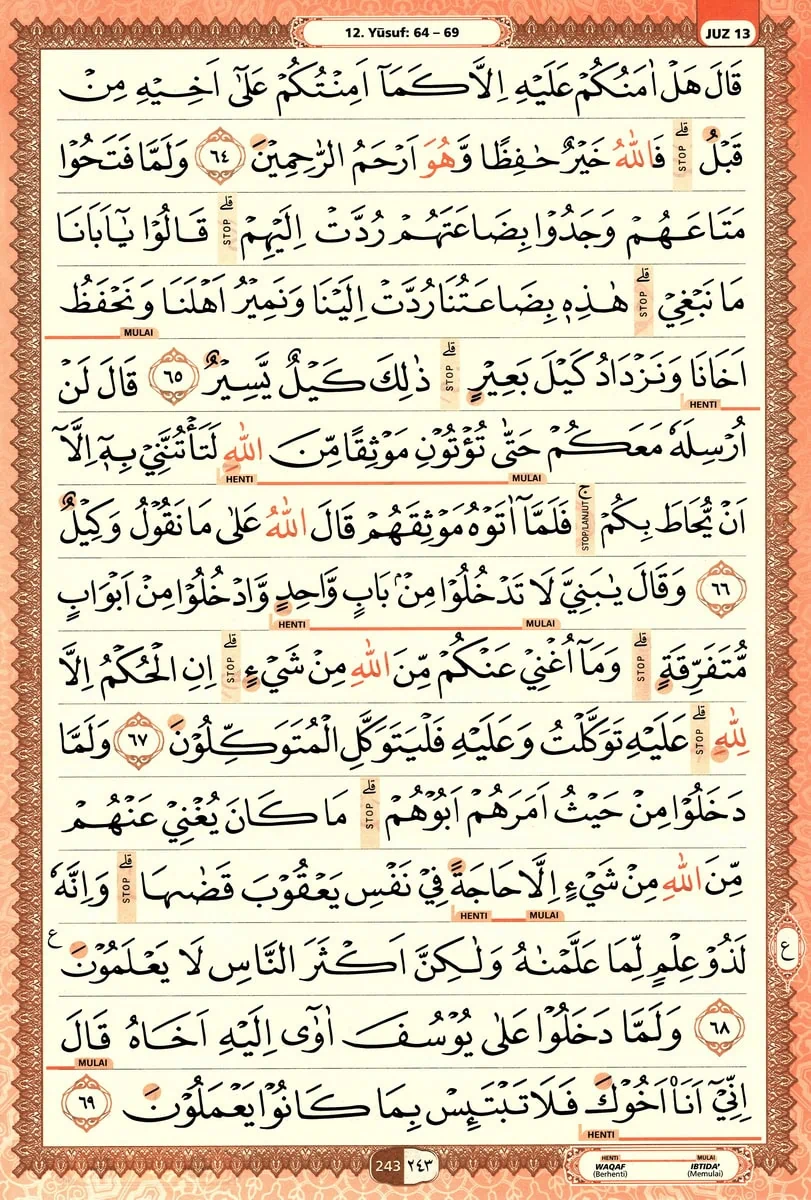 12. Yūsuf: 64 – 69
JUZ 13
قَالَ هَلْ اٰمَنُكُمْ عَلَيْهِ اِلَّا كَمَآ اَمِنْتُكُمْ عَلٰٓى اَخِيْهِ مِنْ
قَبْلُ ۗ STOP فَاللّٰهُ خَيْرٌ حٰفِظًا وَّهُوَ اَرْحَمُ الرّٰحِمِيْنَ ٦٤ وَلَمَّا فَتَحُوْا
مَتَاعَهُمْ وَجَدُوْا بِضَاعَتَهُمْ رُدَّتْ اِلَيْهِمْ ۗ STOP قَالُوْا يٰٓاَبَانَا
مَا نَبْغِيْ ۗ STOP هٰذِهٖ بِضَاعَتُنَا رُدَّتْ اِلَيْنَا وَنَمِيْرُ اَهْلَنَا وَنَحْفَظُ
MULAI
اَخَانَا وَنَزْدَادُ كَيْلَ بَعِيْرٍ ۗ STOP ذٰلِكَ كَيْلٌ يَّسِيْرٌ ٦٥ قَالَ لَنْ
HENTI
اُرْسِلَهٗ مَعَكُمْ حَتّٰى تُؤْتُوْنِ مَوْثِقًا مِّنَ اللّٰهِ لَتَأْتُنَّنِيْ بِهٖٓ اِلَّآ
MULAI HENTI
اَنْ يُّحَاطَ بِكُمْ ۚ STOP/LANJUT فَلَمَّآ اٰتَوْهُ مَوْثِقَهُمْ قَالَ اللّٰهُ عَلٰى مَا نَقُوْلُ وَكِيْلٌ
٦٦ وَقَالَ يٰبَنِيَّ لَا تَدْخُلُوْا مِنْۢ بَابٍ وَّاحِدٍ وَّادْخُلُوْا مِنْ اَبْوَابٍ
MULAI HENTI
مُّتَفَرِّقَةٍ ۗ STOP وَمَآ اُغْنِيْ عَنْكُمْ مِّنَ اللّٰهِ مِنْ شَيْءٍ ۗ STOP اِنِ الْحُكْمُ اِلَّا
لِلّٰهِ ۗ STOP عَلَيْهِ تَوَكَّلْتُ وَعَلَيْهِ فَلْيَتَوَكَّلِ الْمُتَوَكِّلُوْنَ ٦٧ وَلَمَّا
دَخَلُوْا مِنْ حَيْثُ اَمَرَهُمْ اَبُوْهُمْ ۗ STOP مَا كَانَ يُغْنِيْ عَنْهُمْ
مِّنَ اللّٰهِ مِنْ شَيْءٍ اِلَّا حَاجَةً فِيْ نَفْسِ يَعْقُوْبَ قَضٰىهَا ۗ STOP وَاِنَّهٗ
MULAI HENTI
لَذُوْ عِلْمٍ لِّمَا عَلَّمْنٰهُ وَلٰكِنَّ اَكْثَرَ النَّاسِ لَا يَعْلَمُوْنَ ع
ع
٦٨ وَلَمَّا دَخَلُوْا عَلٰى يُوْسُفَ اٰوٰٓى اِلَيْهِ اَخَاهُ قَالَ
MULAI
اِنِّيْٓ اَنَا۠ اَخُوْكَ فَلَا تَبْتَىِٕسْ بِمَا كَانُوْا يَعْمَلُوْنَ ٦٩
HENTI
243 ٢٤٣
HENTI WAQAF (Berhenti)
MULAI IBTIDA' (Memulai)